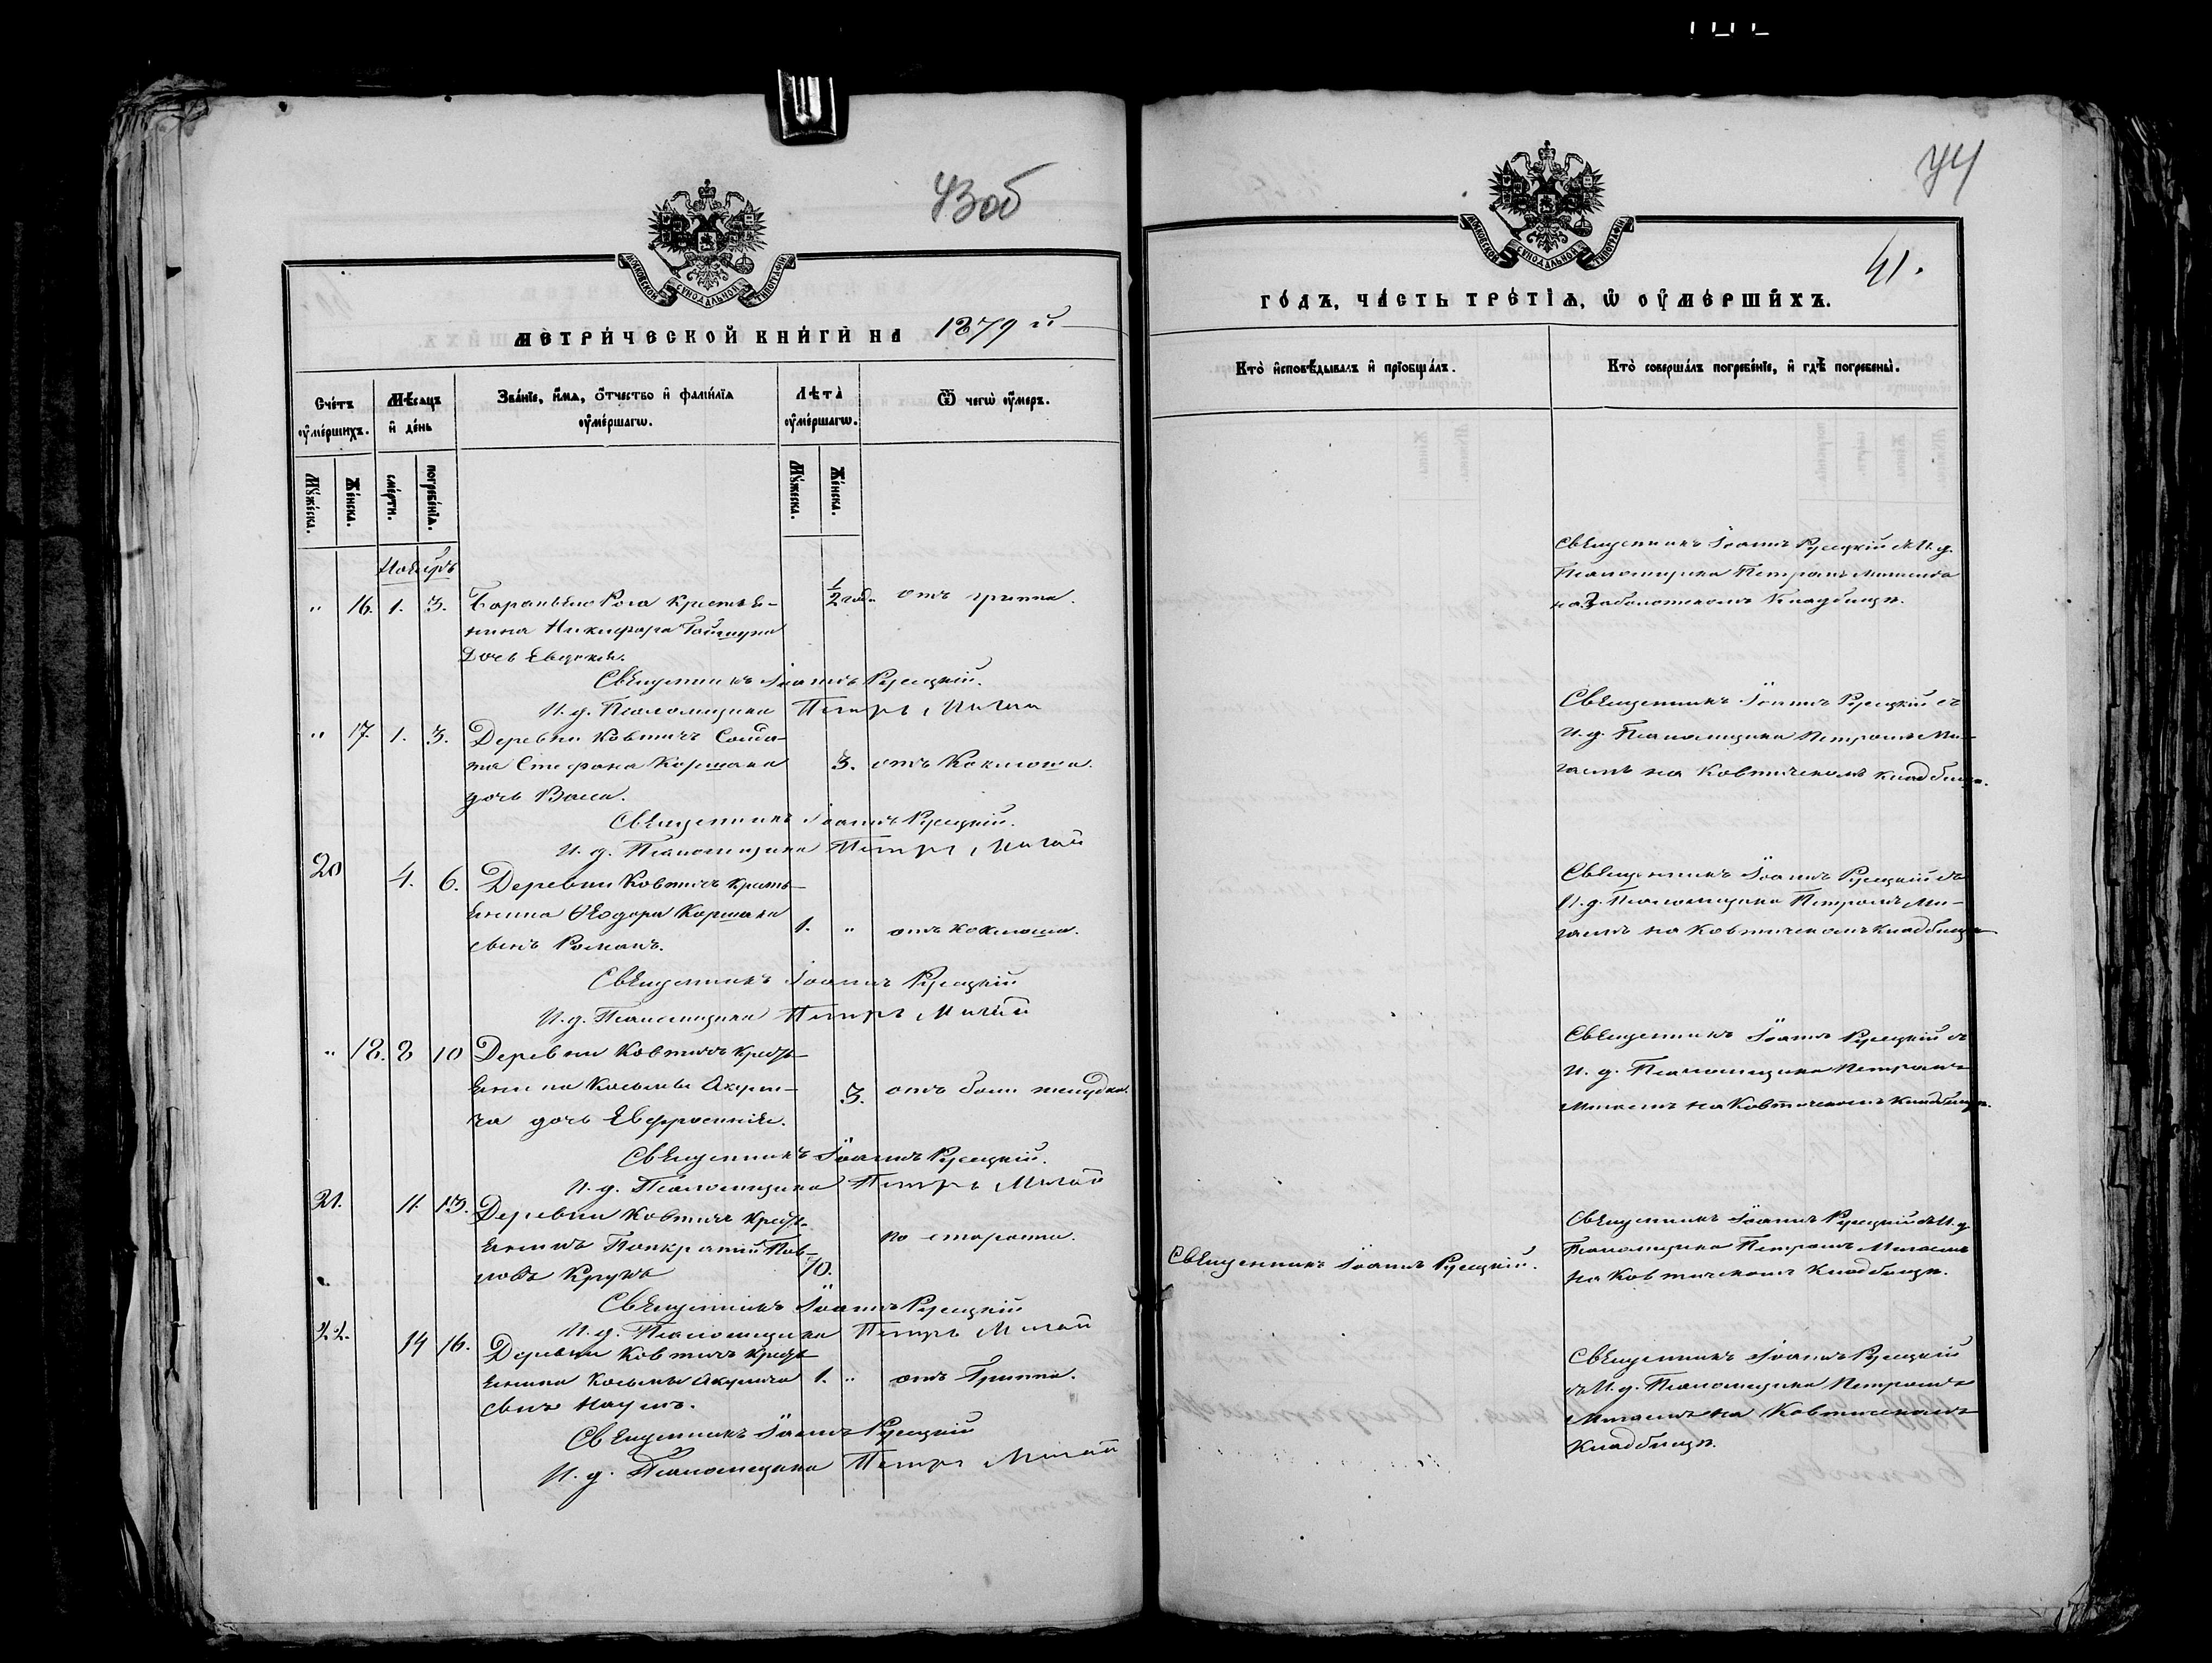 43об
МОСКОВСКОЙ СѴНОДАЛЬНОЙ ТИПОГРАФІИ
МЕТРИ́ЧЕСКОЙ КНИ́ГИ НА 1879 й
Сче́тъ ᲂу҆ме́ршихъ.
Мѣ́сѧцъ и҆ де́нь
Зва́нїе, и҆́мѧ, ѻ҆́тчество и҆ фами́лїѧ ᲂу҆ме́ршагѡ.
Лѣ́та ᲂу҆ме́ршагѡ.
Ѿ чегѡ̀ ᲂу҆́меръ.
Мꙋ́жеска.
Же́нска.
сме́рти.
погребе́нїѧ.
Мꙋ́жеска.
Же́нска.
Ноябрь
" 16. 1. 3. Крестья- 1/2 года отъ гриппа.
нина Никифора
Дочь Евдокія.
Священникъ Іоаннъ Русецкій.
И. д. Псаломщика Петръ Мигай
" 17. 1. 3. Деревни Ковтичъ Солда-
та Стефана Коршака 3. отъ Коклюша.
дочь Васса.
Священникъ Іоаннъ Русецкій.
И. д. Псаломщика Петръ Мигай
20 4. 6. Деревни Ковтичъ Кресть-
янина Ѳеодора Коршака 1. " отъ коклюша.
сынъ Романъ.
Священникъ Іоаннъ Русецкій
И. д. Псаломщика Петръ Мигай
" 18. 8 10 Деревни Ковтичъ Кресть-
янина Косьмы Акули- 3. отъ боли желудка.
ча дочь Евфросинія.
Священникъ Іоаннъ Русецкій.
И. д. Псаломщика Петръ Мигай
21. 11. 13. Деревни Ковтичъ Кресть-
янинъ Панкратій Пав- по старости.
ловъ Крукъ 70.
Священникъ Іоаннъ Русецкій
И. д. Псаломщика Петръ Мигай
22. 14 16. Деревни Ковтичъ Кресть-
янина Косьмы Акулича 1. " отъ Гриппа.
сынъ Наумъ.
Священникъ Іоаннъ Русецкій
И. д. Псаломщика Петръ Мигай
44
41.
МОСКОВСКОЙ СѴНОДАЛЬНОЙ ТИПОГРАФІИ
ГО́ДЪ, ЧА́СТЬ ТРЕ́ТЇѦ, Ѡ҆ ОУ҆МЕ́РШИХЪ.
Кто̀ и҆сповѣ́дывалъ и҆ прїѡбща́лъ.
Кто̀ соверша́лъ погребе́нїе, и҆ гдѣ̀ погребены̀.
Священникъ Іоаннъ Русецкій съ И. д.
Псаломщика Петромъ Мигаемъ
на Заболотскомъ Кладбищѣ.
Священникъ Іоаннъ Русецкій съ
И. д. Псаломщика Петромъ Ми-
гаемъ на Ковтическомъ кладбищѣ.
Священникъ Іоаннъ Русецкій съ
И. д. Псаломщика Петромъ Ми-
гаемъ на Ковтическомъ кладбищѣ
Священникъ Іоаннъ Русецкій съ
И. д. Псаломщика Петромъ
Мигаемъ на Ковтическомъ кладбищѣ.
Священникъ Іоаннъ Русецкій.
Священникъ Іоаннъ Русецкій съ И. д.
Псаломщика Петромъ Мигаемъ
на Ковтическомъ Кладбищѣ.
Священникъ Іоаннъ Русецкій
съ И. д. Псаломщика Петромъ
Мигаемъ на Ковтическомъ
Кладбищѣ.